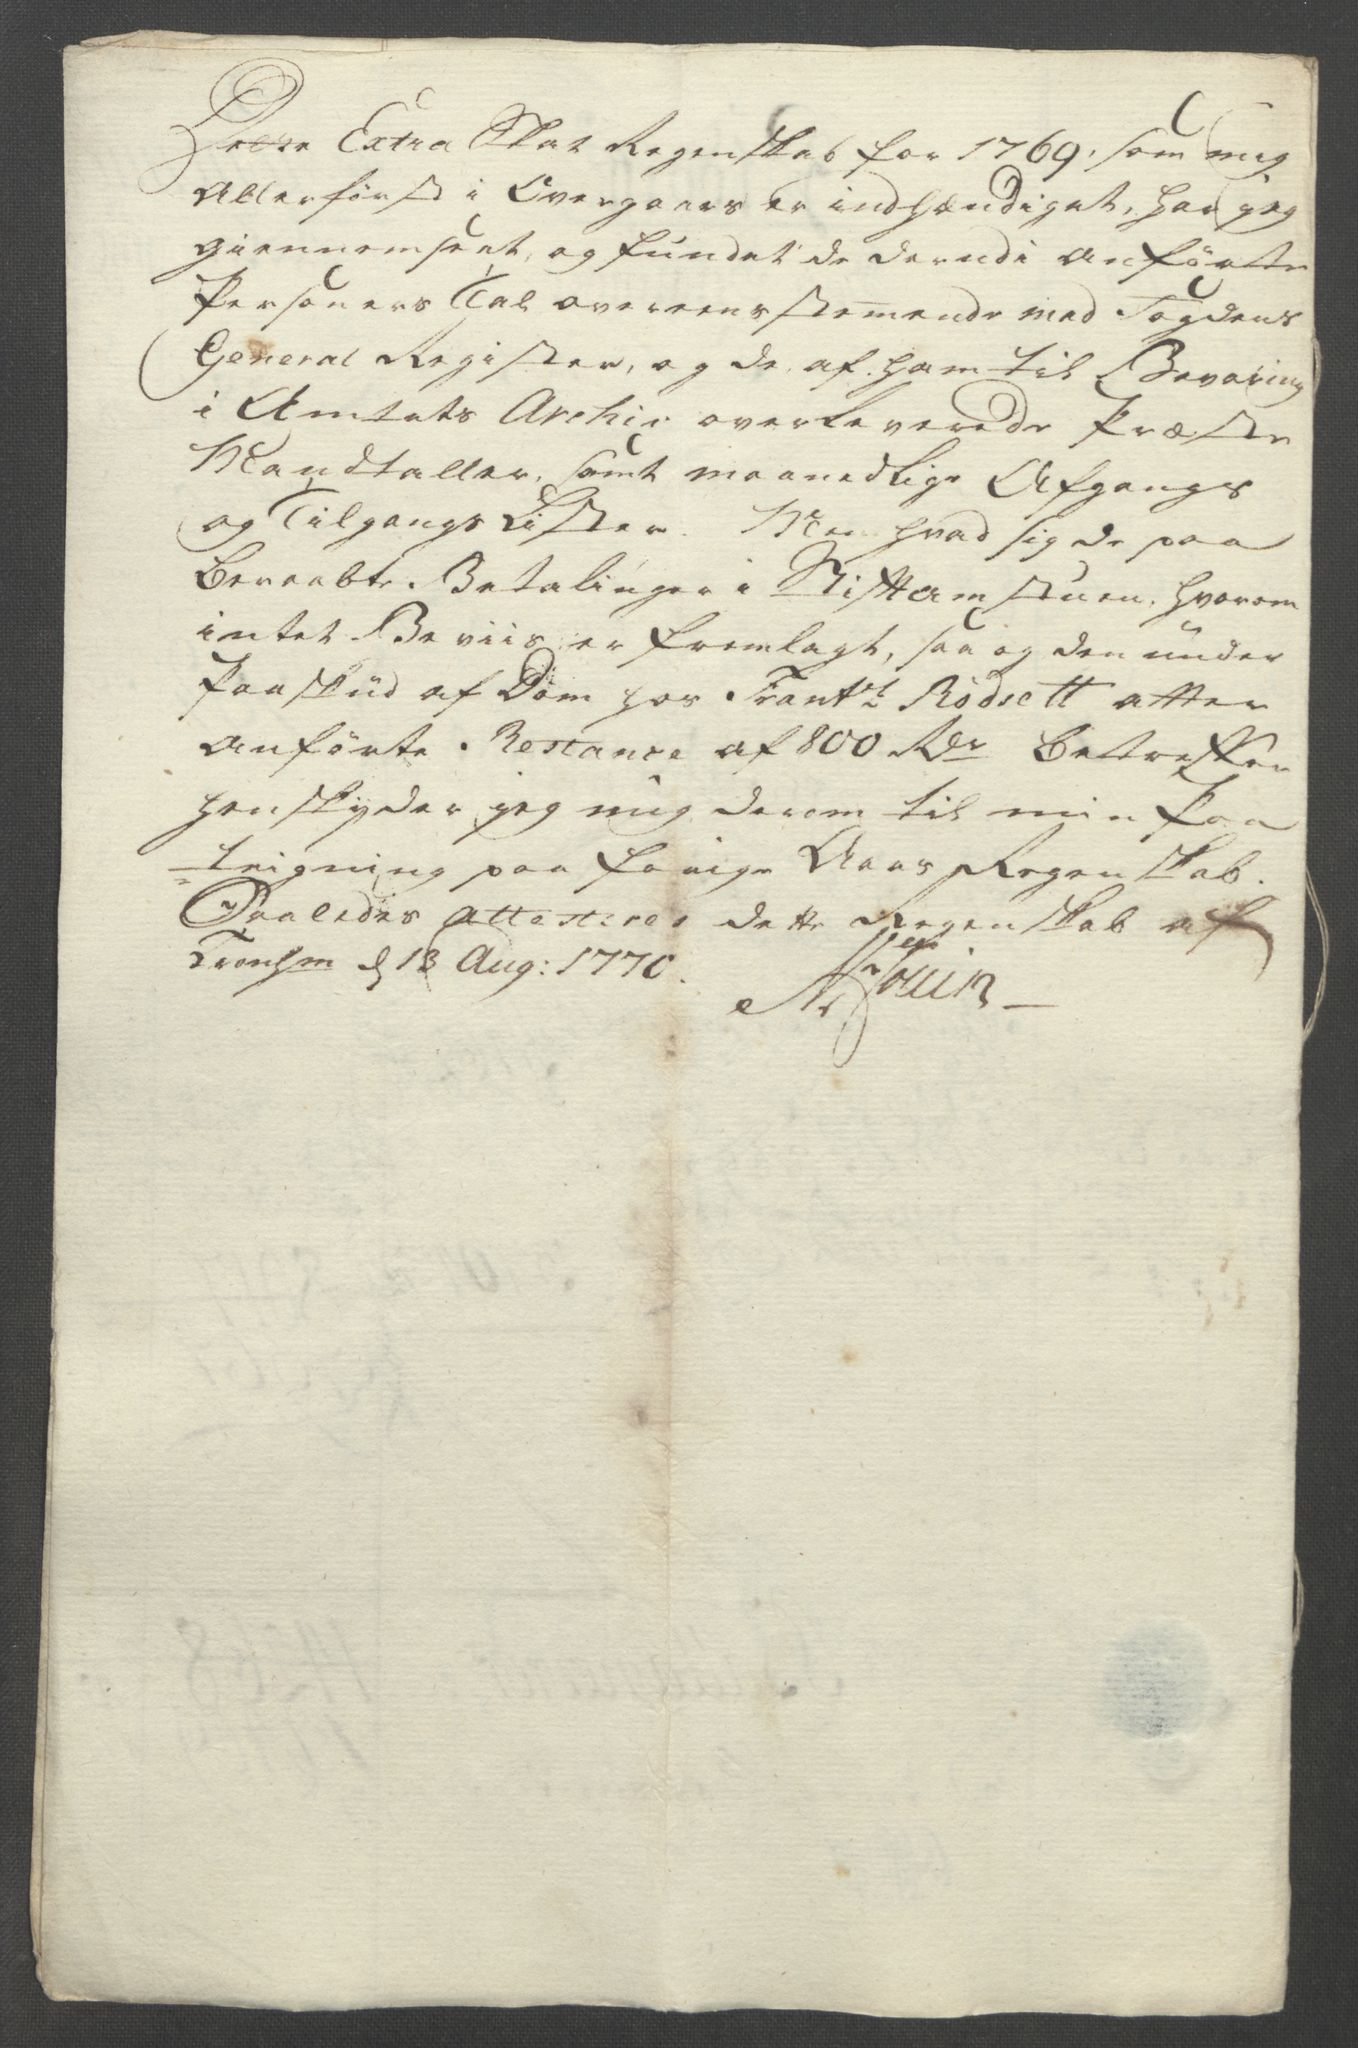 Dette Extra Skat Regenskab for 1769, som mig
allerførst i Overgaars er indhændiget, har jeg
giennemseet, og fundet de derudi anførte
Personers Tal overeensstemende med Fogdens
General Register, og de af ham til Bevaring
i Amtets Archiv overleverede Præste
Mandtaller, samt maanedlige Afgangs
og Tilgangs Lister. Men hvad sig de paa
beraabte Betalinger i Stiftamstuen, hvorom
intet Beviis er fremlagt, saa og den under
Paaskud af Dom hos Frantz Rødsett atter
anførte Restance af 800 Rdr betreffer
henskyder jeg mig derom til min Paa
teigning paa forige Aars Regenskab.
Saaledes attesteres dette Regenskab af
Tronhm d 13 Aug: 1770.